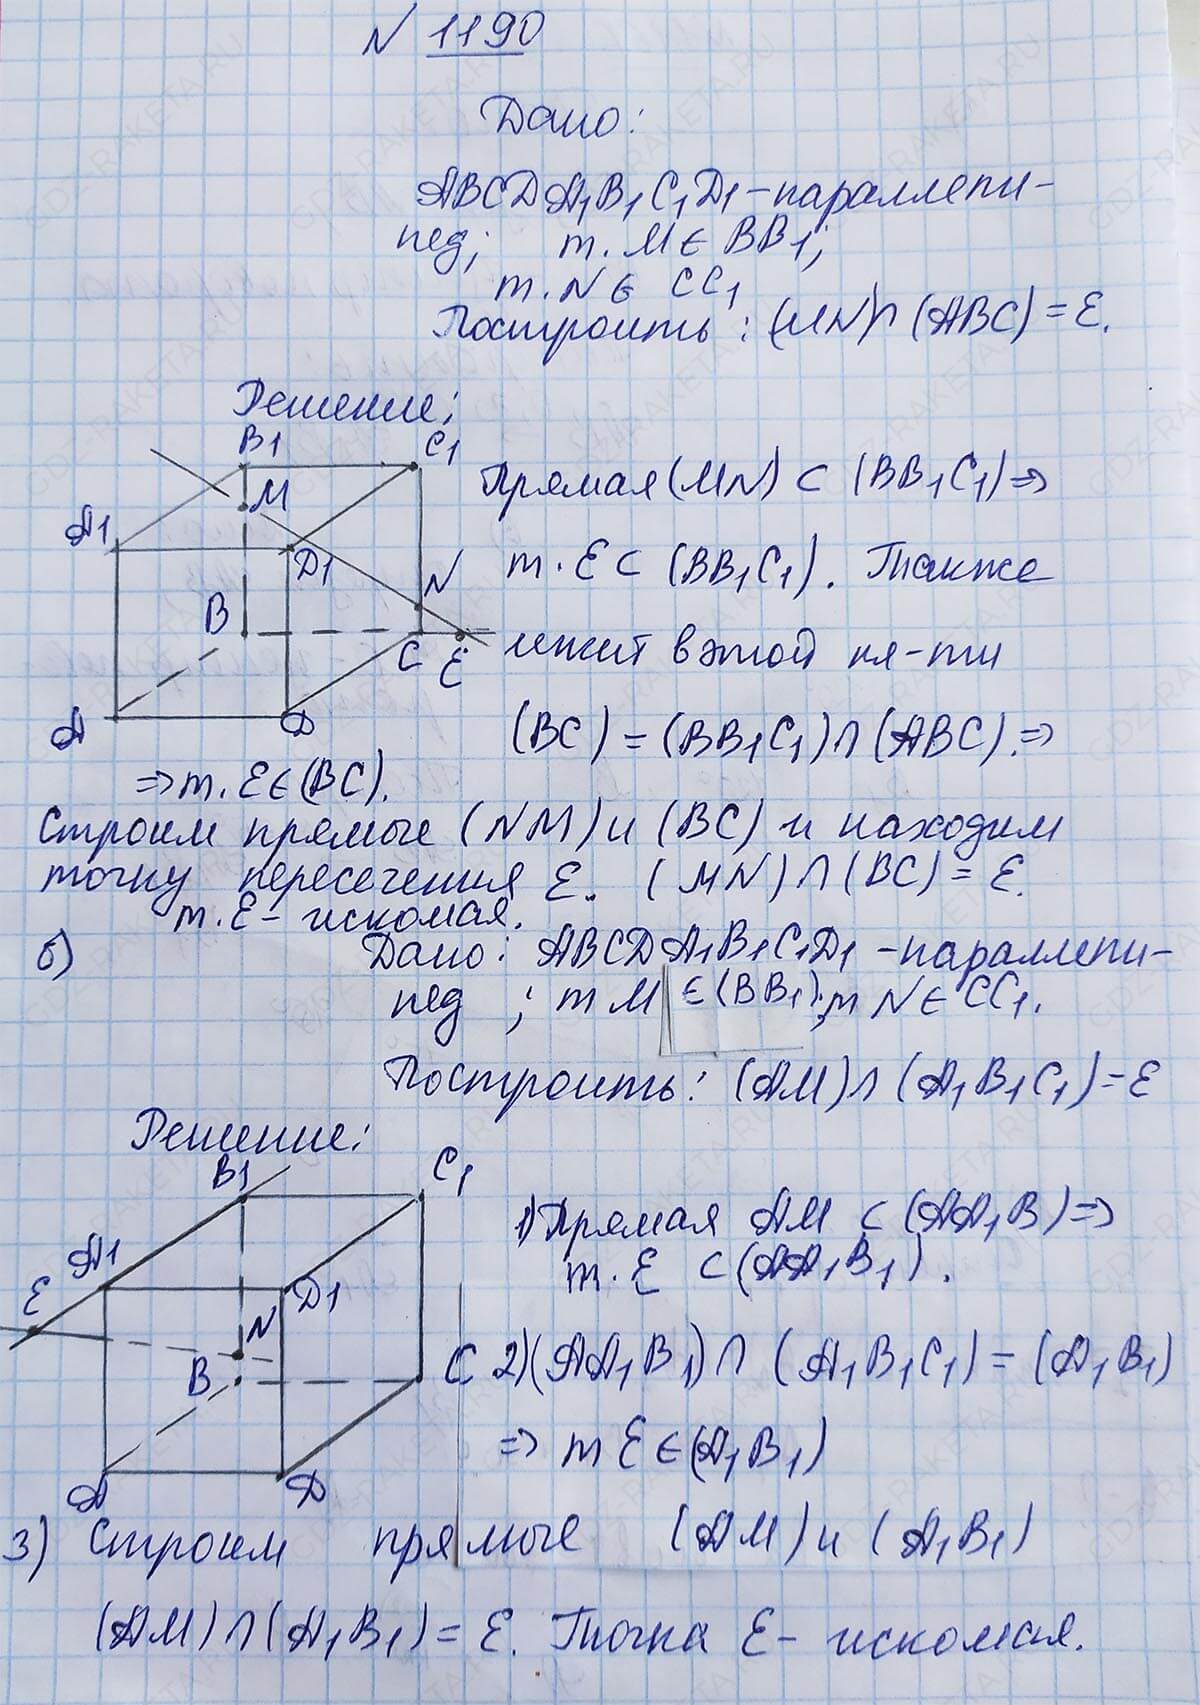 N 1190
Дано:
ABCDA₁B₁C₁D₁ - параллепи-
пед; т. M ∈ BB₁;
т. N ∈ CC₁
Построить: (MN) ∩ (ABC) = E.
Решение:
B1
C1
M
A1
D1
N
B
C
E
A
D
Прямая (MN) ⊂ (BB₁C₁) ⇒
т. E ⊂ (BB₁C₁). Также
лежит в этой пл-ти
(BC) = (BB₁C₁) ∩ (ABC). ⇒
⇒ т. E ∈ (BC).
Строим прямые (NM) и (BC) и находим
точку пересечения E. (MN) ∩ (BC) = E.
т. E - искомая.
б) Дано: ABCDA₁B₁C₁D₁ - параллепи-
пед ; т M ∈ (BB₁); т N ∈ CC₁.
Построить: (AM) ∩ (A₁B₁C₁) = E
Решение:
B1
C1
A1
E
D1
N
B
C
A
D
1) Прямая AM ⊂ (AA₁B) ⇒
т. E ⊂ (AA₁B₁).
2) (AA₁B₁) ∩ (A₁B₁C₁) = (A₁B₁)
⇒ т E ∈ (A₁B₁)
3) Строим прямые (AM) и (A₁B₁)
(AM) ∩ (A₁B₁) = E. Точка E - искомая.